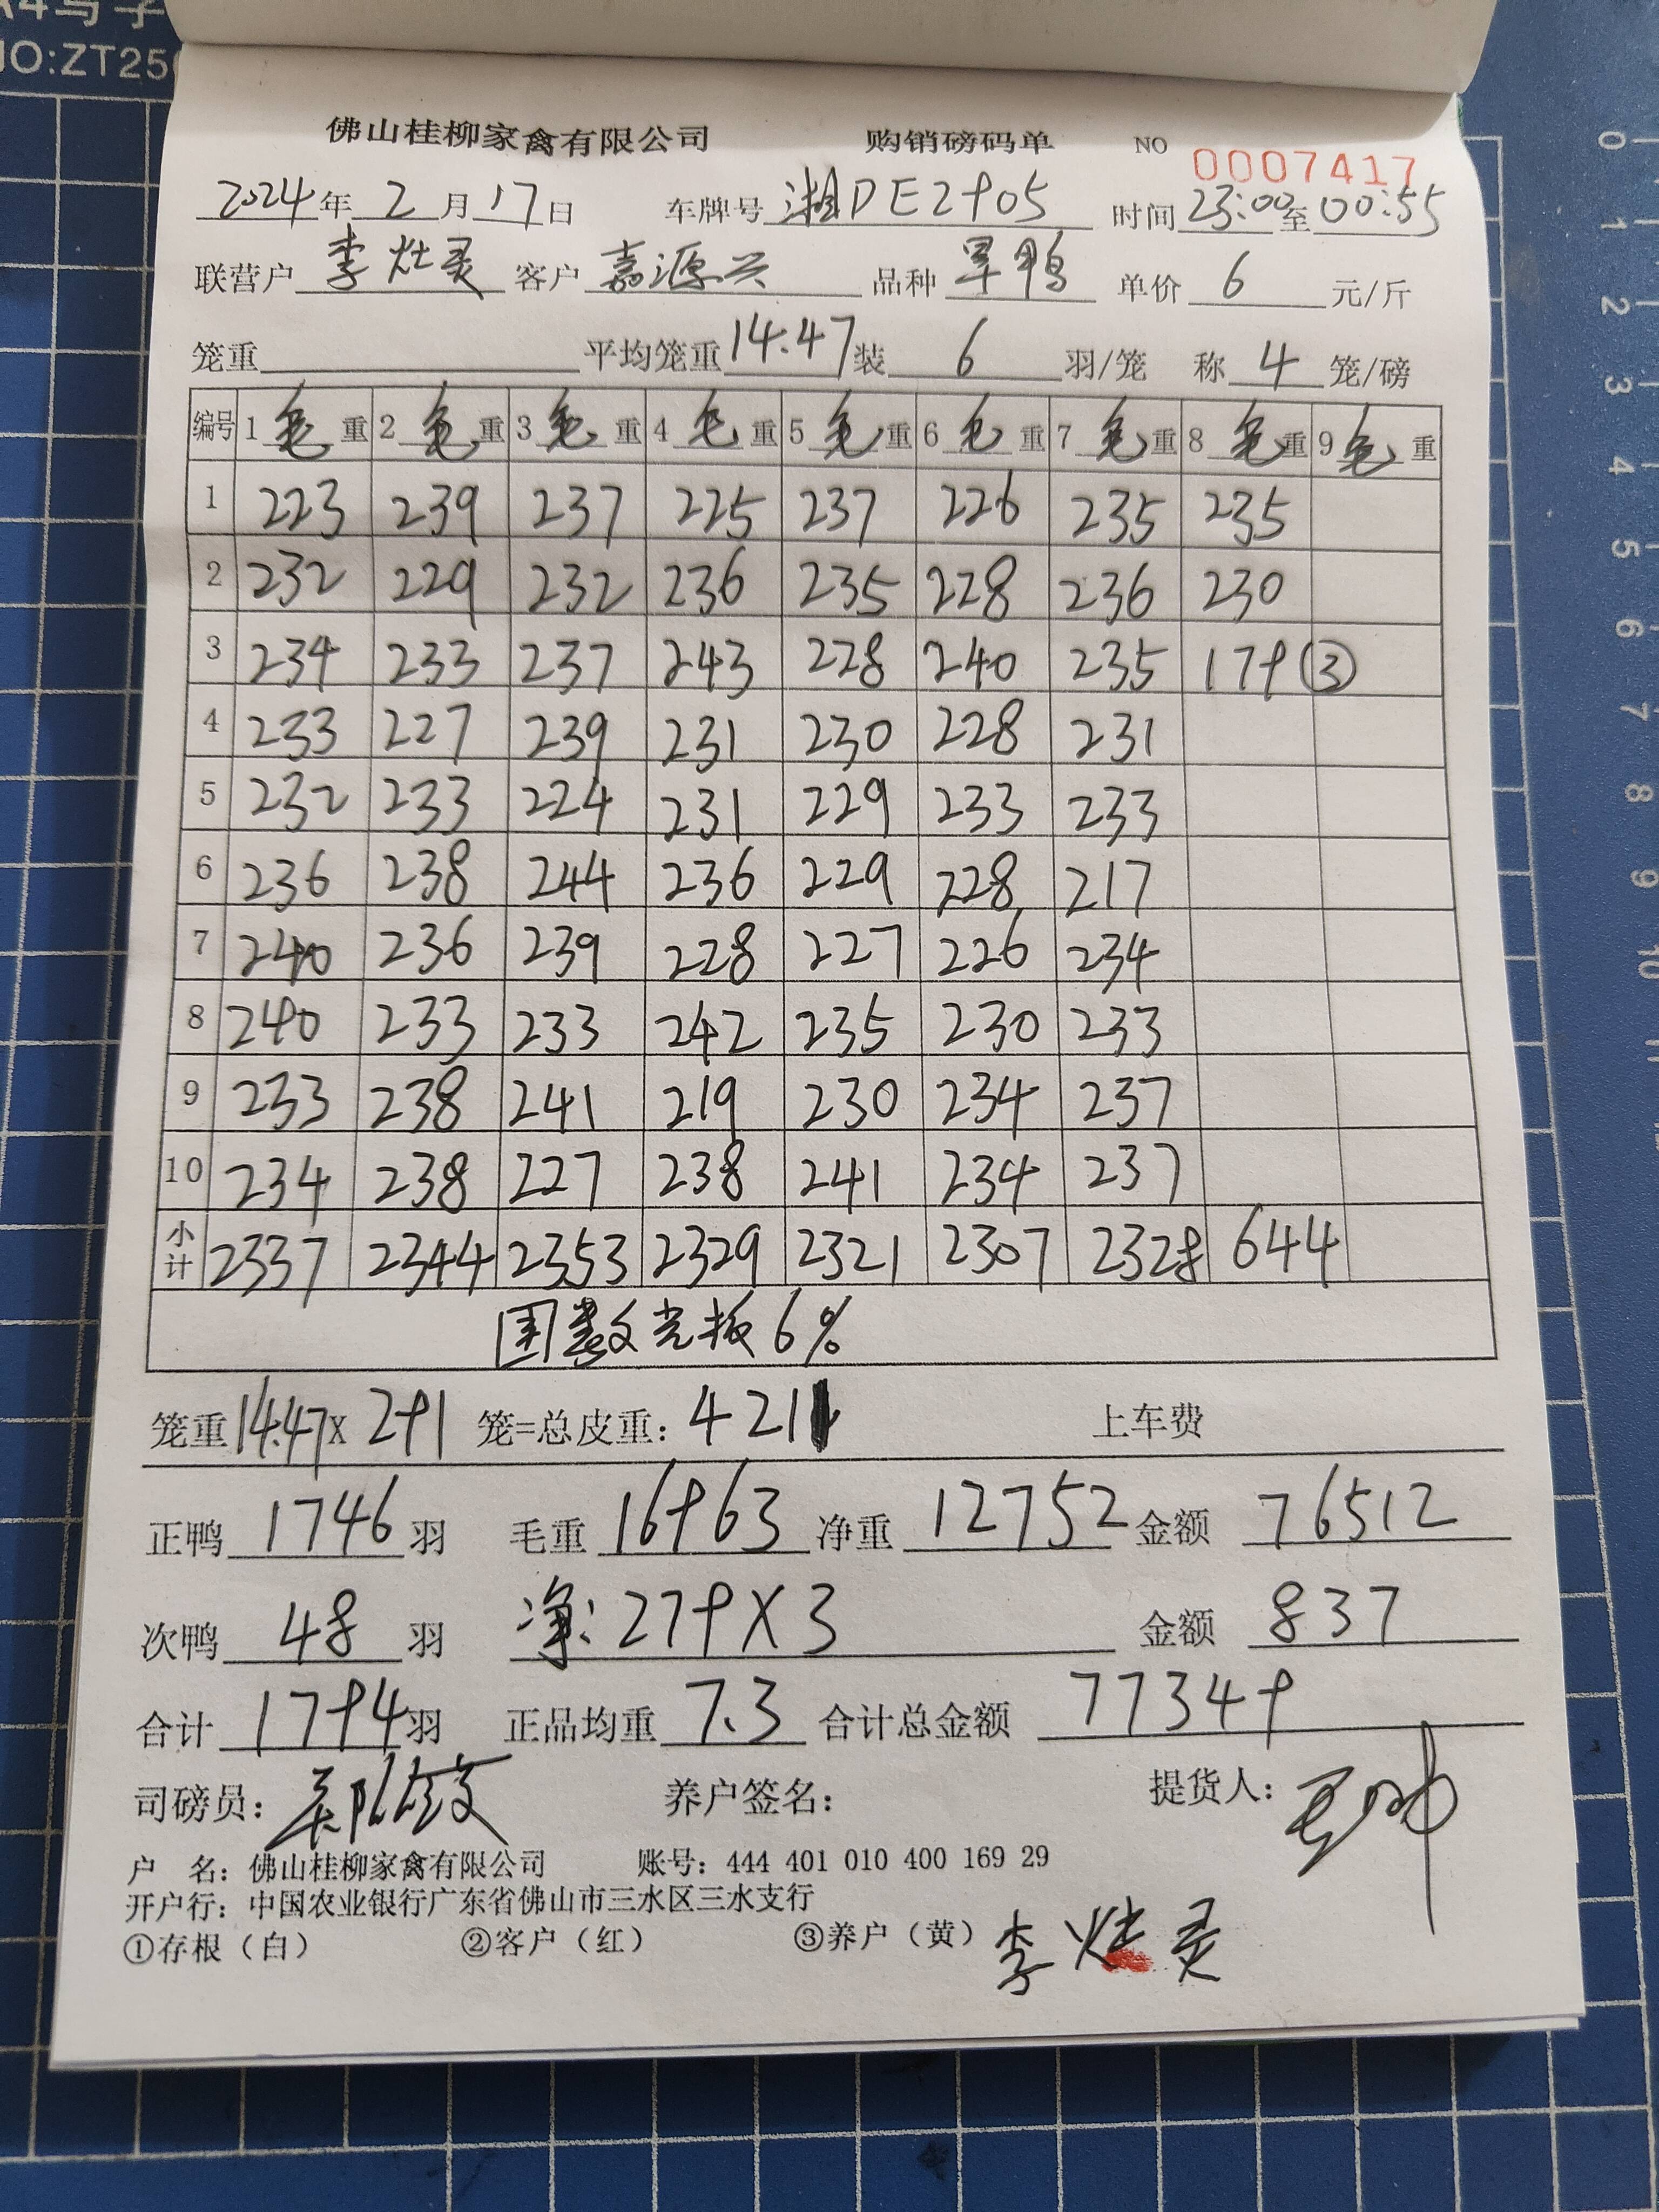 A4写字
NO:ZT25
佛山桂柳家禽有限公司 购销磅码单 NO 0007417
2024年2月17日 车牌号 湘DE2905 时间 23:00至00:55
联营户 李灶灵 客户 嘉源兴 品种 旱鸭 单价 6 元/斤
笼重 平均笼重 14.47 装 6 羽/笼 称 4 笼/磅
编号 1 毛重 2 毛重 3 毛重 4 毛重 5 毛重 6 毛重 7 毛重 8 毛重 9 毛重
1 223 239 237 225 237 226 235 235
2 232 229 232 236 235 228 236 230
3 234 233 237 243 228 240 235 179 ③
4 233 227 239 231 230 228 231
5 232 233 224 231 229 233 233
6 236 238 244 236 229 228 217
7 240 236 239 228 227 226 234
8 240 233 233 242 235 230 233
9 233 238 241 219 230 234 237
10 234 238 227 238 241 234 237
小计 2337 2344 2353 2329 2321 2307 2328 644
6%
笼重 14.47 x 291 笼=总皮重: 4211 上车费
正鸭 1746 羽 毛重 16963 净重 12752 金额 76512
次鸭 48 羽 净: 279 X 3 金额 837
合计 1794 羽 正品均重 7.3 合计总金额 77349
司磅员: 养户签名: 提货人:
户 名: 佛山桂柳家禽有限公司 账号: 444 401 010 400 169 29
开户行: 中国农业银行广东省佛山市三水区三水支行
①存根（白） ②客户（红） ③养户（黄） 李灶灵
0
1
2
3
4
5
6
7
8
9
10